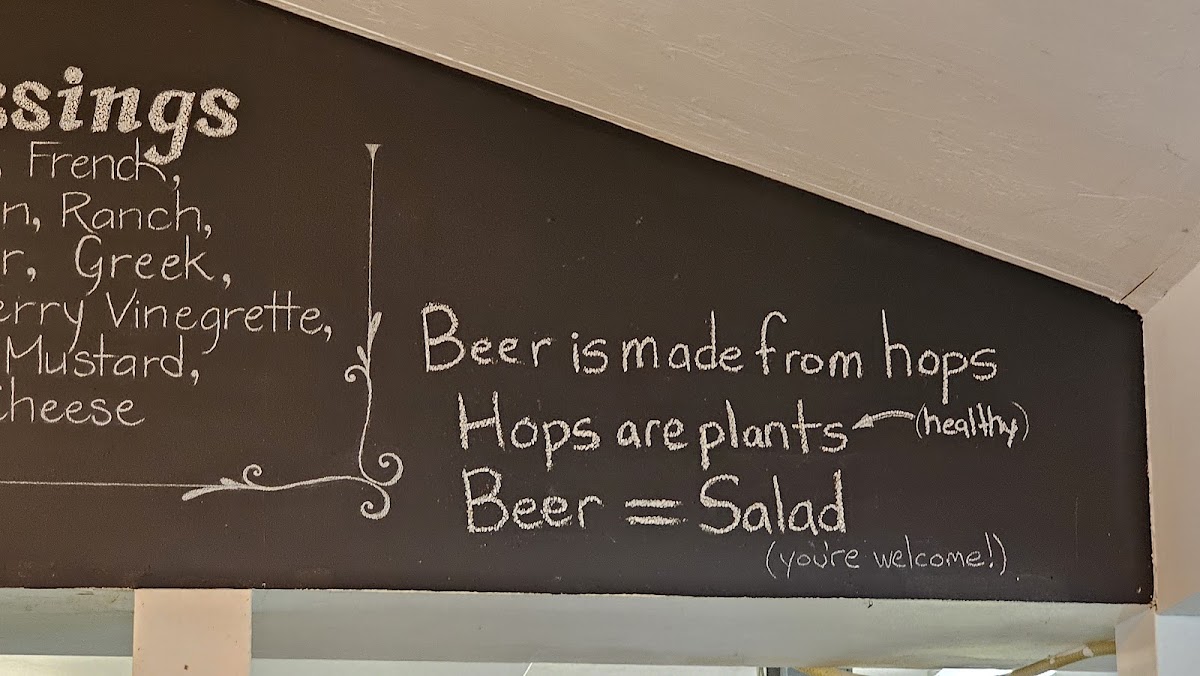 French,
Ranch,
Greek,
Vinegrette,
Mustard,
Cheese
Beer is made from hops
Hops are plants (healthy)
Beer = Salad
(you're welcome!)